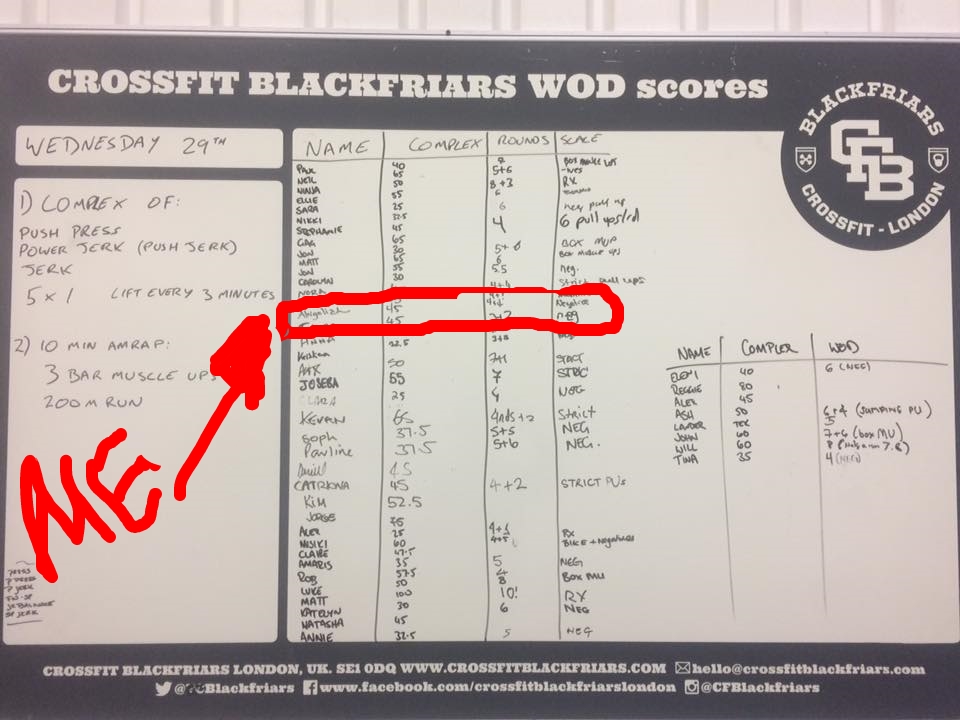 CROSSFIT BLACKFRIARS WOD scores
BLACKFRIARS
CFB
CROSSFIT - LONDON
WEDNESDAY 29TH
1) COMPLEX OF:
PUSH PRESS
POWER JERK (PUSH JERK)
JERK
5 x 1 LIFT EVERY 3 MINUTES
2) 10 MIN AMRAP:
3 BAR MUSCLE UPS
200M RUN
ME
NAME COMPLEX ROUNDS SCALE
PAUL 40
NEIL 65 5+6
NINA 50 8+3 RX
ELLIE 55 6
SARA 25 6
NIKKI 32.5 4 6 pull ups/rd
STEPHANIE 45
65
JON 30 5+ BOX MUP
MATT 65 6 BOX MUSCLE UPS
JON 55 5.5 neg.
CAROLYN 30
NORA 4+4 Strict pull ups
Abigaileh 45 Negative
45 neg
ANNA 32.5
50 7+1 STRICT
ALEX 7 STRIC
JOSEBA 55
CLARA 25 4 NEG
KEVAN 65 4rnds+2 Strict
Soph 37.5 5+5 NEG
Pauline 37.5 5+6 NEG.
Daniel 45
CATRIONA 45 4+2 STRICT PUs
Kim 52.5
JORGE 75
ALEX 25 4+1 Rx
60 4+5 BIKE + Negatives
CLAIRE 47.5
AMARIS 35 5 NEG
ROB 57.5 4
LUKE 50 8 BOX MU
MATT 100 10! RX
KATELYN 30 6 NEG
NATASHA 45
ANNIE 32.5 5 NEG
NAME COMPLEX WOD
ELENI 40 6 (NEG)
REGGIE 80
ALEX 45
ASH 50 6+4 (JUMPING PU)
LANDER 5
JOHN 60 7+6 (box MU)
WILL 60 8
TINA 35 4 (NEG)
PRESS
P PRESS
P JERK
SP JERK
CROSSFIT BLACKFRIARS LONDON, UK. SE1 0DQ WWW.CROSSFITBLACKFRIARS.COM hello@crossfitblackfriars.com
Blackfriars www.facebook.com/crossfitblackfriarslondon @CFBlackfriars